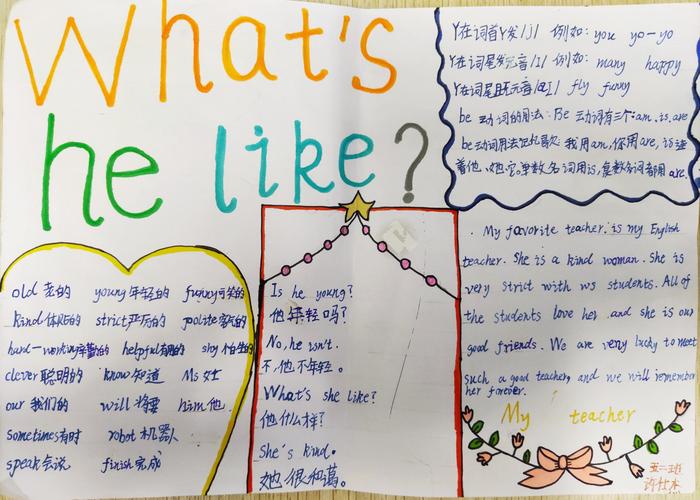 What's
he like?
Y在词首Y发/j/ 例如: you yo-yo
Y在词尾发元音/I/ 例如: many happy
Y在词尾且无元音/aI/ fly funny
be 动词的用法: Be 动词有三个: am, is, are
be动词用法 我用am, 你用are, is连
着他、她、它。单数名词用is, 复数名词都用are.
old 老的 young 年轻的 funny 可笑的
kind 体贴的 strict 严厉的 polite 客气的
hard-working 辛勤的 helpful 有用的 shy 怕生的
clever 聪明的 know 知道 Ms 女士
our 我们的 will 将要 him 他.
sometimes 有时 robot 机器人
speak 会说 finish 完成
Is he young?
他年轻吗?
No, he isn't.
不, 他不年轻.
What's she like?
他什么样?
She's kind.
她很和蔼.
My favorite teacher is my English
teacher. She is a kind woman. She is
very strict with us students. All of
the students love her and she is our
good friends. We are very lucky to meet
such a good teacher, and we will remember
her forever.
My teacher
五二班